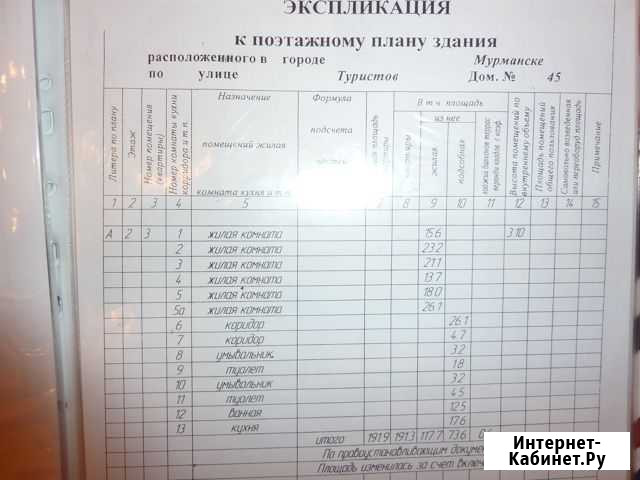 ЭКСПЛИКАЦИЯ
к поэтажному плану здания
расположенного в городе Мурманске
по улице Туристов Дом. № 45
Литера по плану
Этаж
Номер помещения (квартиры)
Номер комнаты кухни корридора и т.п.
Назначение помещений жилая комната кухня и т.п.
Формула подсчета
площадь
В т.ч. площадь
из нее
жилая
подсобная
Высота помещений по внутреннему объему
Площадь помещений общего пользования
Самовольно возведенная или переоборуд. площадь
Примечание
1 2 3 4 5 7 8 9 10 11 12 13 14 15
А 2 3 1 жилая комната 15.6 3.10
2 жилая комната 23.2
3 жилая комната 21.1
4 жилая комната 13.7
5 жилая комната 18.0
5а жилая комната 26.1
6 коридор 26.1
7 коридор 4.7
8 умывальник. 3.2
9 туалет 1.8
10 умывальник 3.2
11 туалет 4.5
12 ванная 12.5
13 кухня 17.6
итого 191.9 191.3 117.7 73.6
По правоустанавливающим докумен
Площадь изменилась за счет включ
Интернет-
Кабинет.Ру